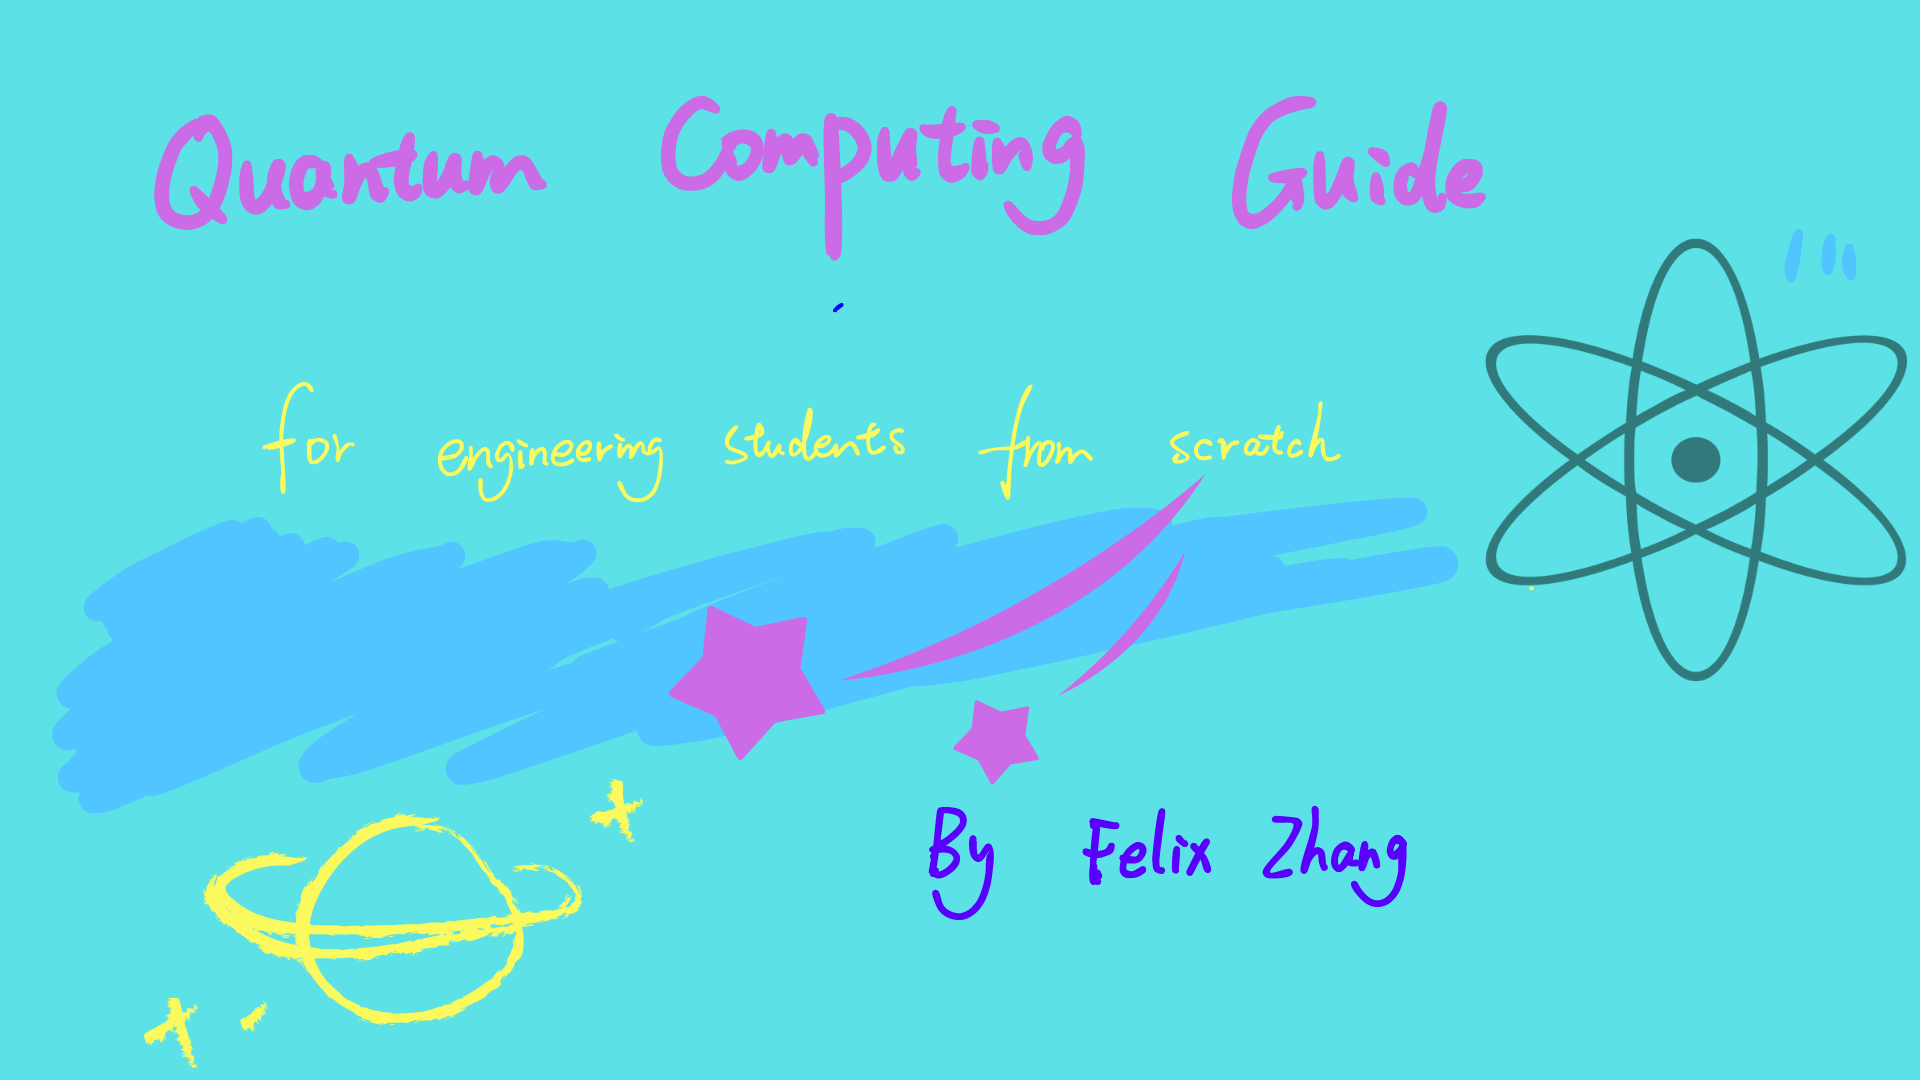 Quantum Computing Guide
for engineering students from scratch
By Felix Zhang